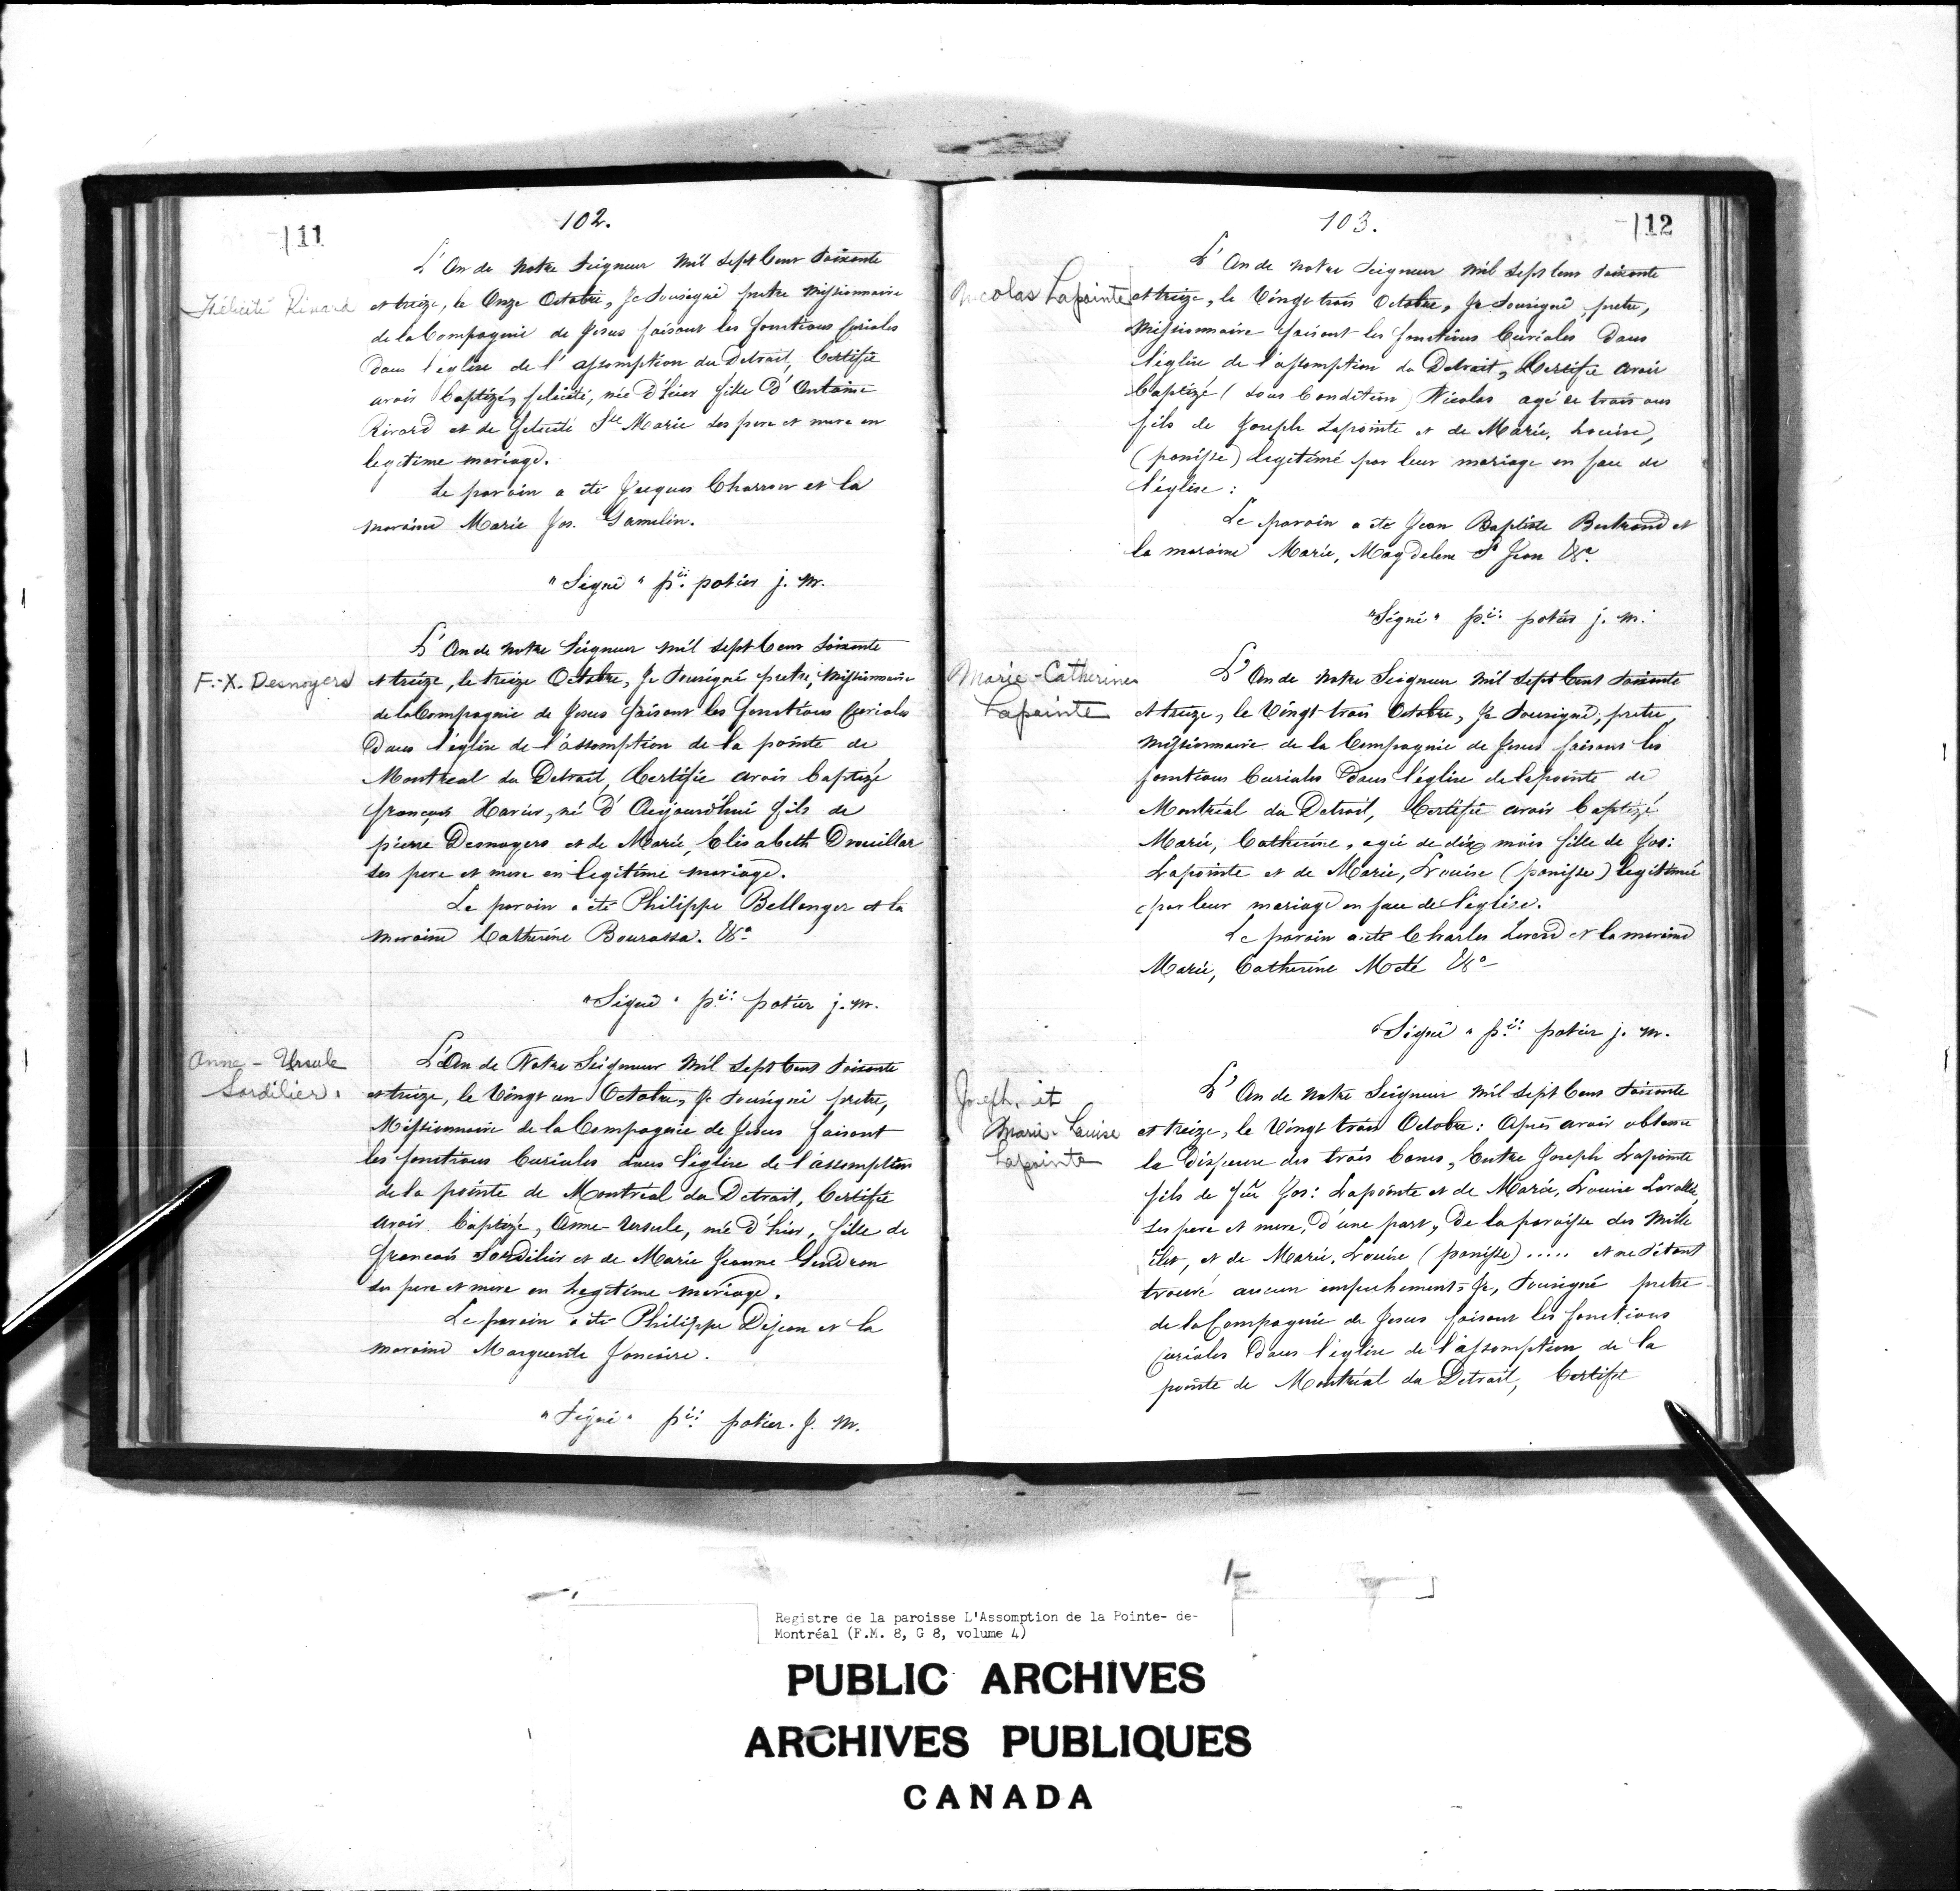 102.
11
L'An de Notre Seigneur mil sept Cent soixante
Félicité Rivard
et treize, le Onze Octobre, Je Sousigné pretre Missionnaire
de la Compagnie de Jesus faisant les fonctions Curiales
dans l'église de l'assomption du Detroit, Certifie
avoir Baptizé, felicité, née d'hier fille d'Antoine
Rivard et de Felicité Ste Marie ses pere et mere en
legitime mariage.
Le parain a été Jacques Charron et la
maraine Marie Jos. Gamelin.
"Signé" pii. potier j. m.
L'An de notre Seigneur mil sept Cent soixante
F.-X. Desnoyers
et treize, le treize Octobre, Je Sousigné pretre, Missionnaire
de la Compagnie de Jesus faisant les fonctions Curiales
Dans l'église de l'assomption de la pointe de
Montreal du Detroit, Certifie avoir baptizé
françois Xavier, né d'Aujourd'hui fils de
pierre Desnoyers et de Marie, Elisabeth Drouillar
ses pere et mere en legitime mariage.
Le parain a été Philippe Bellanger et la
maraine Catherine Bourassa. &a
"Signé" pii: potier j. m.
Anne-Ursule
Sordilier.
L'An de Notre Seigneur mil sept Cent soixante
et treize, le Vingt un Octobre, Je Sousigné pretre,
Missionnaire de la Compagnie de Jesus faisant
les fonctions Curiales dans l'église de l'assomption
de la pointe de Montreal du Detroit, Certifie
avoir baptizé, Anne-Ursule, née d'hier, fille de
francois Sordilier et de Marie Jeanne Gendron
ses pere et mere en legitime mariage.
Le parain a été Philippe Dejean et la
maraine Marguerite Joncaire.
"Signé" pii: potier. J. M.
103.
12
L'An de notre Seigneur mil sept Cent soixante
Nicolas Lapointe
et treize, le Vingt trois Octobre, Je Sousigné, pretre,
Missionnaire faisant les fonctions Curiales dans
l'église de l'assomption du Detroit, Certifie avoir
baptizé (sous Condition) Nicolas agé de trois ans
fils de Joseph Lapointe et de Marie, Louise,
(panisse) legitimé par leur mariage en face de
l'église:
Le parain a été Jean Baptiste Bertrand et
la maraine Marie, Magdelene St Jean &a.
"Signé" pii: potier j. m.
Marie-Catherine
Lapointe
L'An de notre Seigneur mil sept Cent soixante
et treize, le Vingt trois Octobre, Je Sousigné, pretre,
Missionnaire de la Compagnie de Jesus faisans les
fonctions Curiales dans l'église de lapointe de
Montréal du Detroit, Certifie avoir baptizé
Marie, Catherine, agée de dix mois fille de Jos:
Lapointe et de Marie, Louise (panisse) legitimée
par leur mariage en face de l'église.
Le parain a été Charles et la maraine
Marie, Catherine Meté &a
"Signé" pii: potier j. m.
Joseph, et
Marie-Louise
Lapointe
L'An de notre Seigneur mil sept Cent soixante
et treize, le Vingt trois Octobre: Après avoir obtenu
la dispense des trois bancs, Entre Joseph Lapointe
fils de feû Jos: Lapointe et de Marie, Louise Lavallée,
ses pere et mere, d'une part, De la paroisse des Mille
Iles, et de Marie, Louise (panisse)..... et ne s'étant
trouvé aucun empechement, Je, Sousigné pretre
de la Compagnie de Jesus faisant les fonctions
Curiales dans l'église de l'assomption de la
pointe de Montréal du Detroit, Certifie
Registre de la paroisse L'Assomption de la Pointe- de-
Montréal (F.M. 8, G 8, volume 4)
PUBLIC ARCHIVES
ARCHIVES PUBLIQUES
CANADA